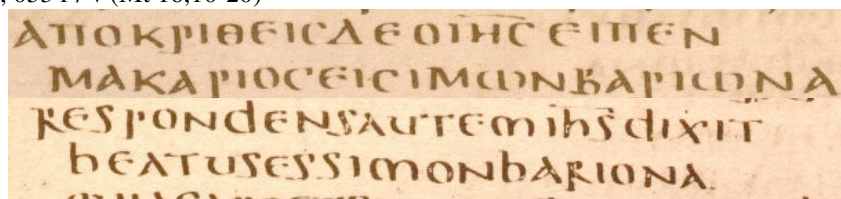 (Mt 16,10-20)
ΑΠΟΚΡΙΘΕΙϹΔΕΟΙΗϹ̅ΕΙΠΕΝ
ΜΑΚΑΡΙΟϹΕΙϹΙΜΩΝΒΑΡΙΩΝΑ
RESPONdENSAUTEMIhS̅dIXIT
bEATUSESSIMONbARIONA